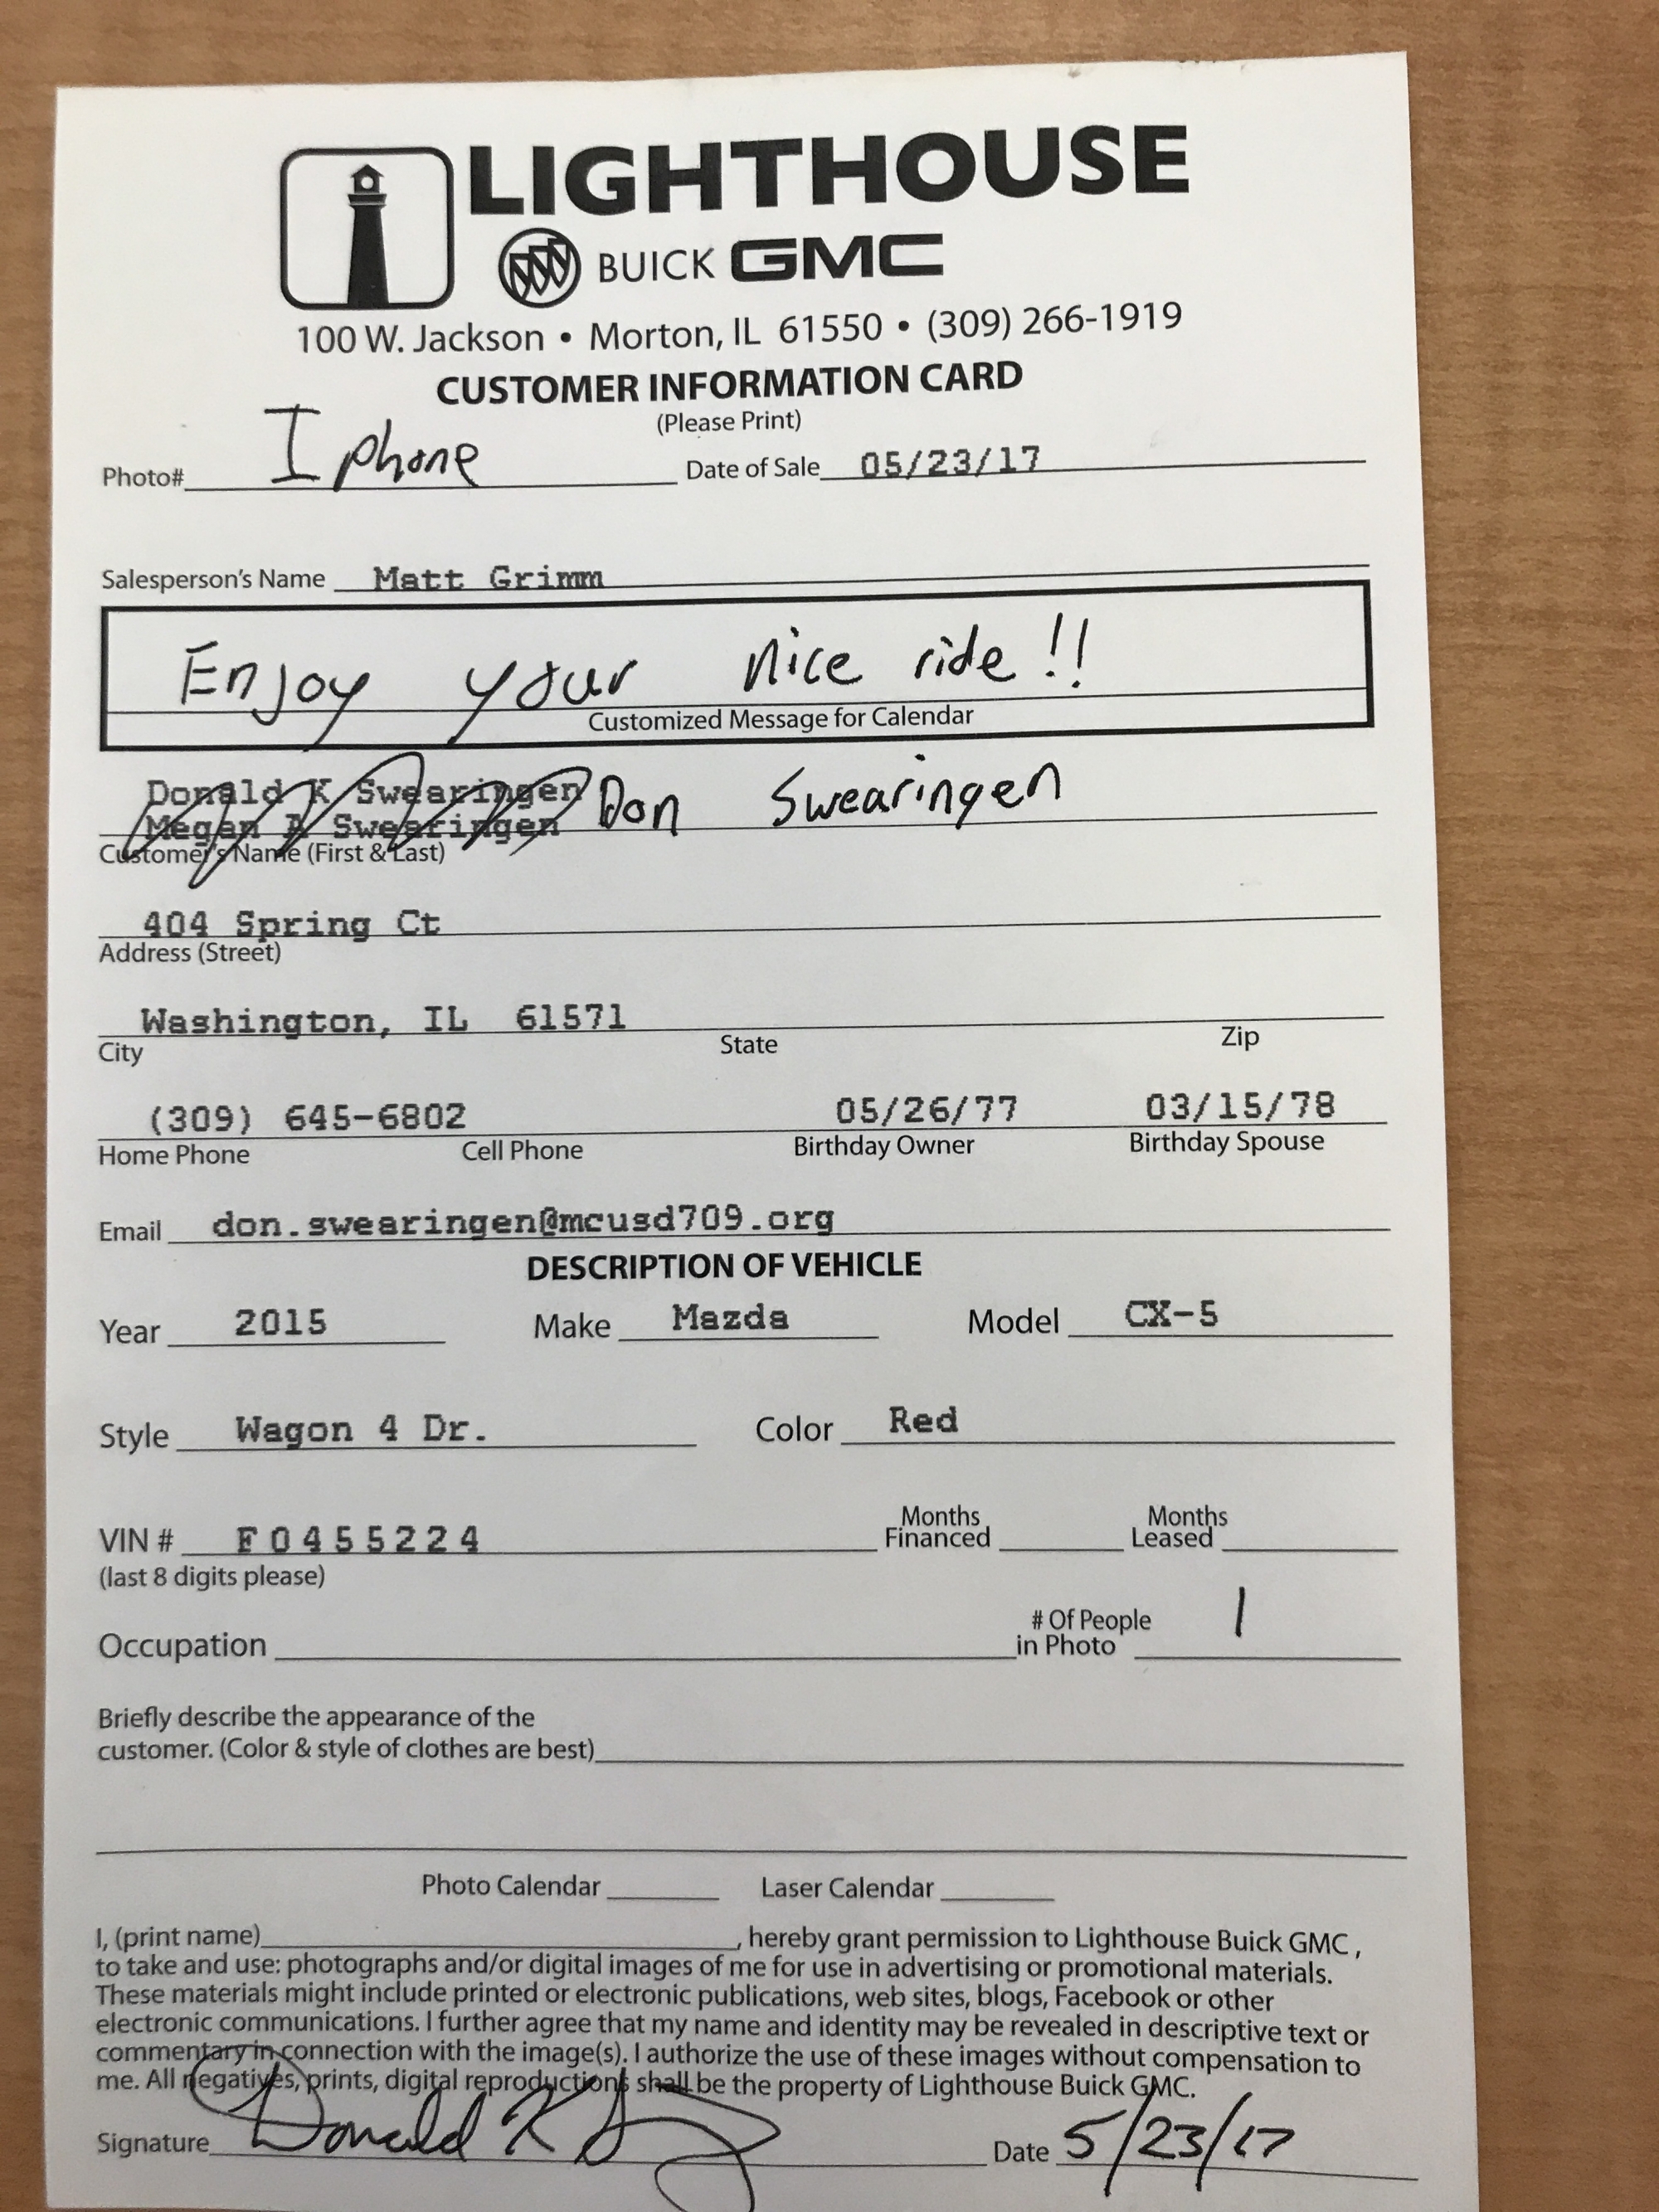 LIGHTHOUSE
BUICK GMC
100 W. Jackson • Morton, IL 61550 • (309) 266-1919
CUSTOMER INFORMATION CARD
(Please Print)
Photo# I phone Date of Sale 05/23/17
Salesperson's Name Matt Grimm
Enjoy your nice ride!!
Customized Message for Calendar
Donald K Swearingen Don Swearingen
Megan A Swearingen
Customer's Name (First & Last)
404 Spring Ct
Address (Street)
Washington, IL 61571
City State Zip
(309) 645-6802 05/26/77 03/15/78
Home Phone Cell Phone Birthday Owner Birthday Spouse
Email don.swearingen@mcusd709.org
DESCRIPTION OF VEHICLE
Year 2015 Make Mazda Model CX-5
Style Wagon 4 Dr. Color Red
VIN # F0455224 Months Financed Months Leased
(last 8 digits please)
Occupation # Of People in Photo 1
Briefly describe the appearance of the
customer. (Color & style of clothes are best)
Photo Calendar Laser Calendar
I, (print name) , hereby grant permission to Lighthouse Buick GMC ,
to take and use: photographs and/or digital images of me for use in advertising or promotional materials.
These materials might include printed or electronic publications, web sites, blogs, Facebook or other
electronic communications. I further agree that my name and identity may be revealed in descriptive text or
commentary in connection with the image(s). I authorize the use of these images without compensation to
me. All negatives, prints, digital reproductions shall be the property of Lighthouse Buick GMC.
Signature Donald K Date 5/23/17